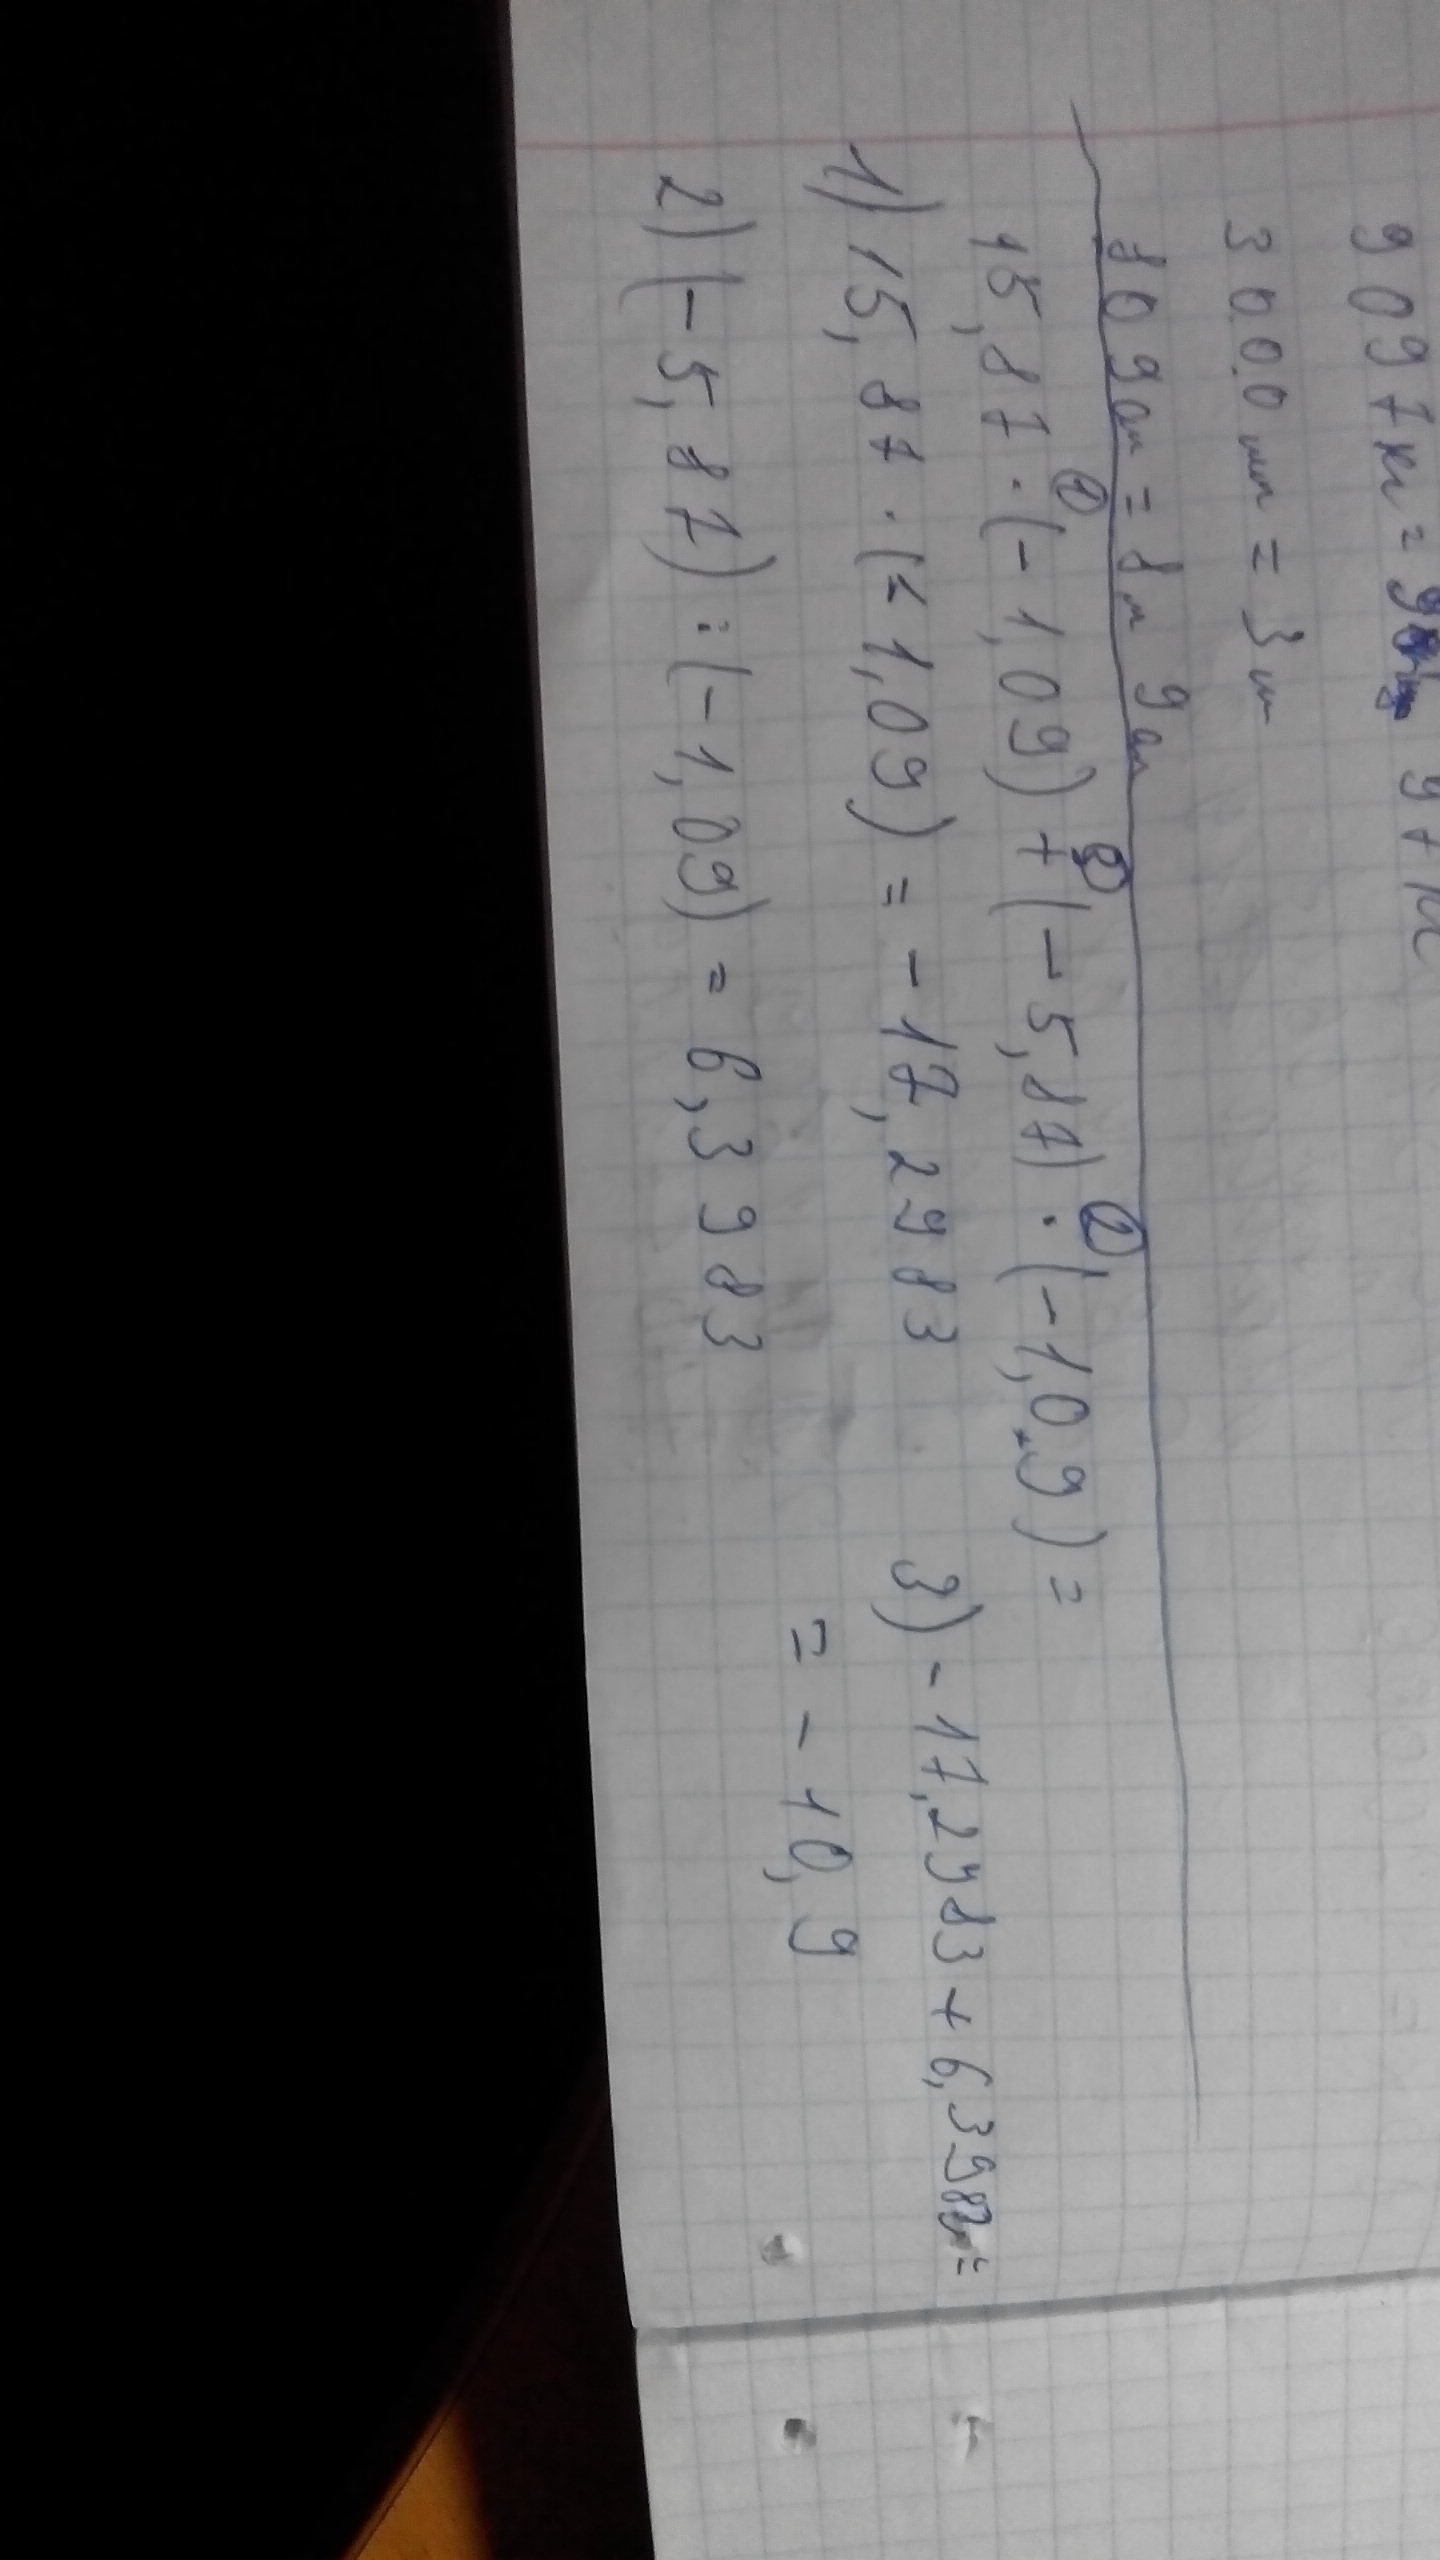 9097 кг = 9 т
3000 мм = 3 м
809 см = 8 м 9 см
15,87 · (-1,09) + (-5,87) · (-1,09) =
1) 15,87 · (-1,09) = -17,2983
2) (-5,87) : (-1,09) = 6,3983
3) -17,2983 + 6,3983 =
= -10,9